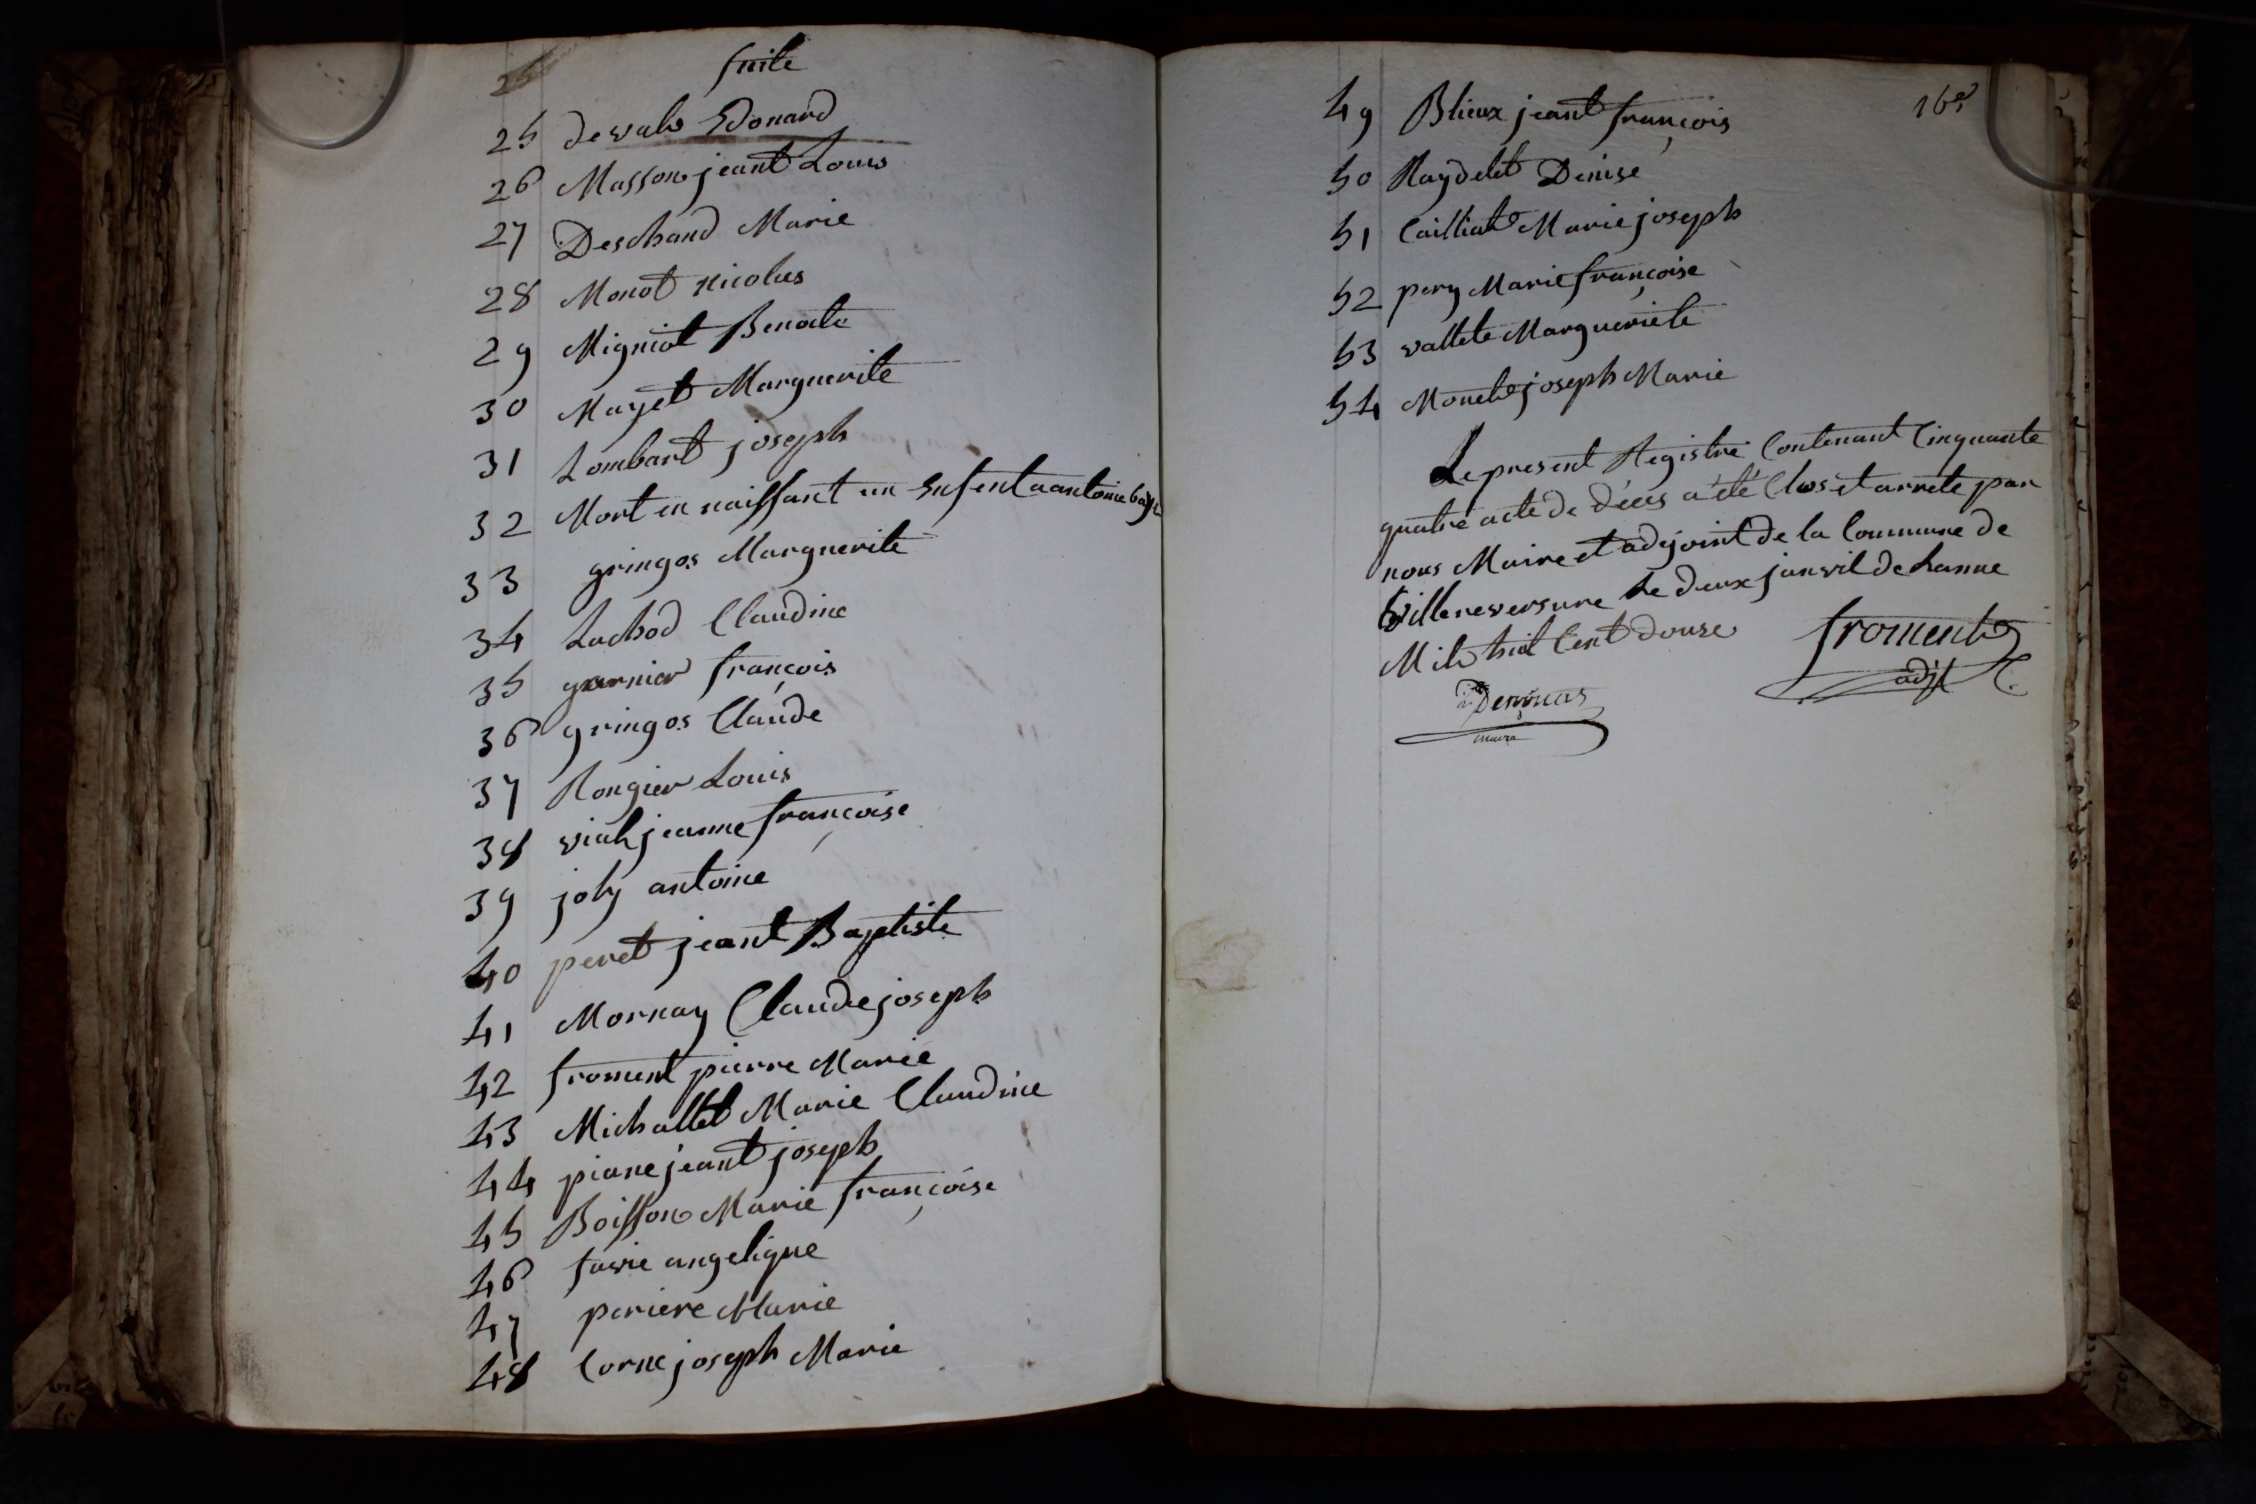 suite
25 devals Edouard
26 Masson jeant Louis
27 Deschand Marie
28 Monot nicolas
29 Migniot Benoite
30 Mayet Marguerite
31 Lombart joseph
32 Mort en naissant un Enfent a antoine
33 gringos Marguerite
34 Luchod Claudine
35 garnier françois
36 gringos Claude
37 Rongier Louis
38 vial jeanne françoise
39 joly antoine
40 peret jeant Baptiste
41 Mornay Claude joseph
42 froment pierre Marie
43 Michallet Marie Claudine
44 piane jeant joseph
45 Boisson Marie françoise
46 favie angelique
47 periere Marie
48 Corne joseph Marie
16e
49 Blieux jeant françois
50 Raydelet Denise
51 Cailliat Marie joseph
52 pery Marie françoise
53 vallete Marguerite
54 Monet joseph Marie
Le present Registre Contenant Cinquante
quatre acte de déces a été Clos et arrete par
nous Maire et adejoint de la Commune de
villereversure Le deux janvil de Lanne
Mile huit Cent douze
froment
adjt
maire